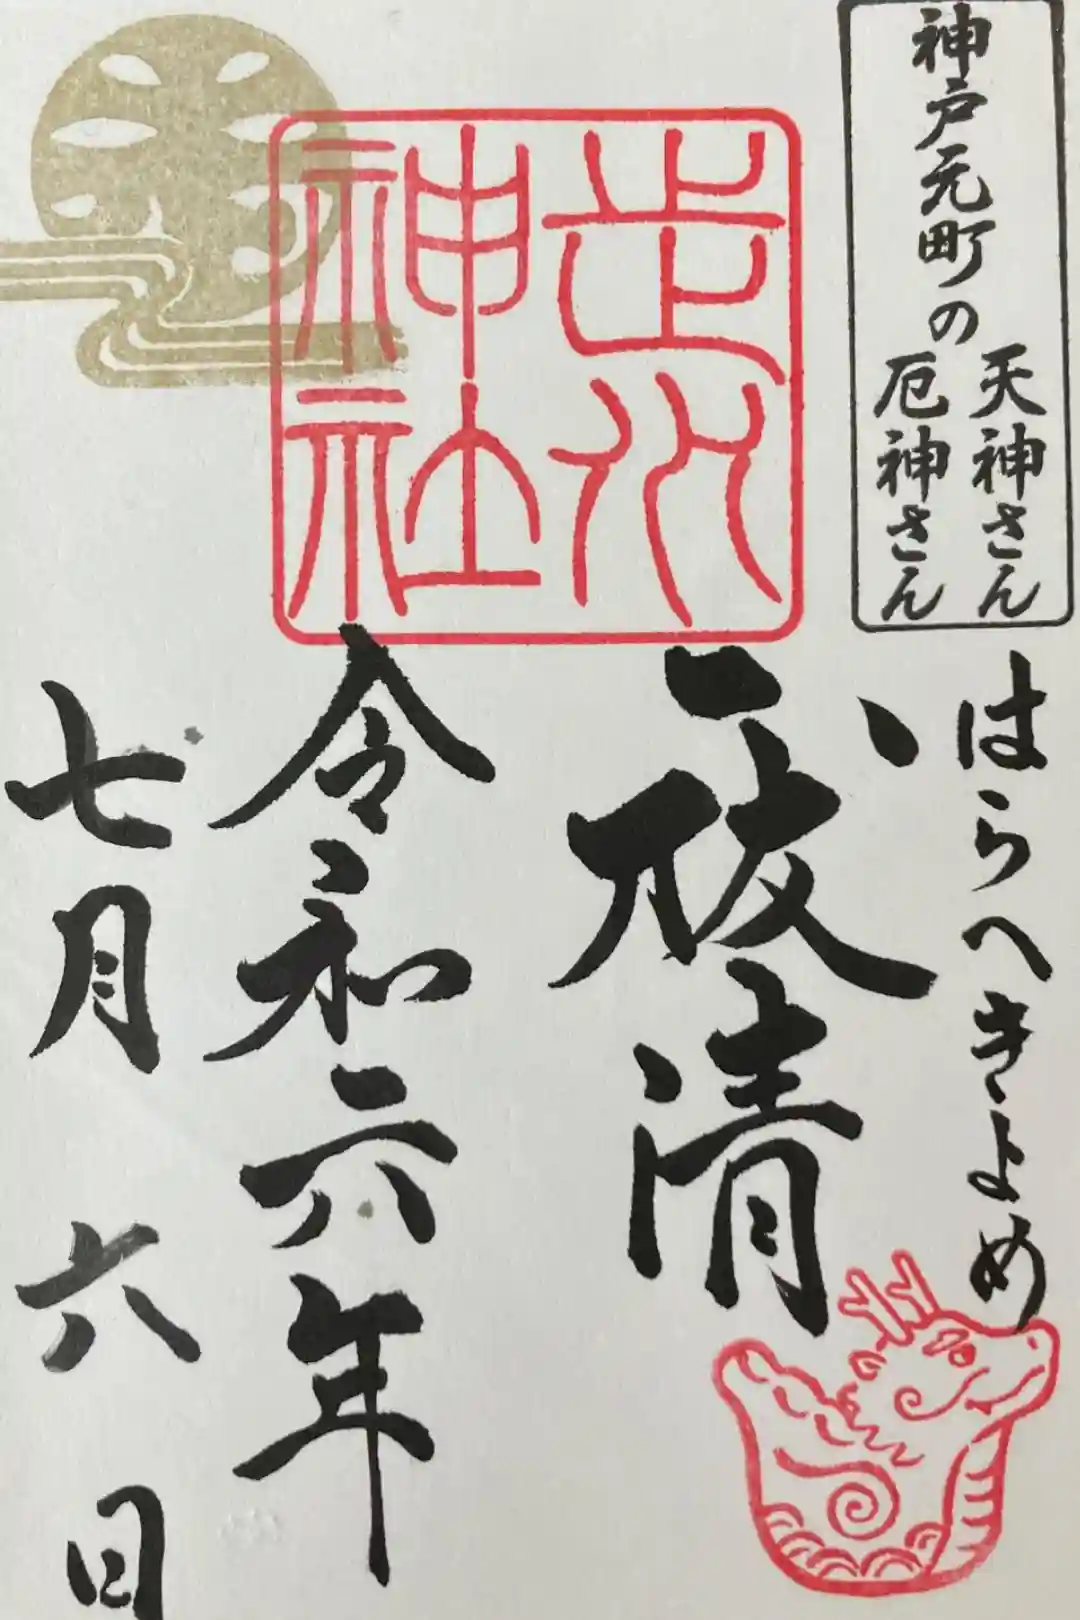 神戸元町の
天神さん
厄神さん
走水
神社
はらへきよめ
祓清
令和六年
七月六日